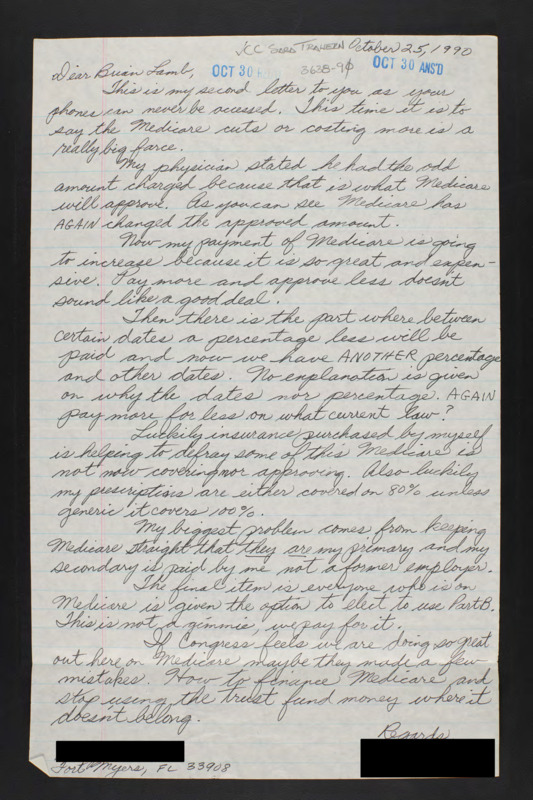 VCC Sara Trahern October 25, 1990
Dear Brian Lamb,
OCT 30
3638-90
OCT 30 ANS'D
This is my second letter to you as your
phones can never be accessed. This time it is to
say the Medicare cuts or costing more is a
really big farce.
My physician stated he had the odd
amount charged because that is what Medicare
will approve. As you can see Medicare has
AGAIN changed the approved amount.
Now my payment of Medicare is going
to increase because it is so great and expen-
sive. Pay more and approve less doesn't
sound like a good deal.
Then there is the part where between
certain dates a percentage less will be
paid and now we have ANOTHER percentage
and other dates. No explanation is given
on why the dates nor percentage. AGAIN
pay more for less on what current law?
Luckily insurance purchased by myself
is helping to defray some of this Medicare is
not now covering nor approving. Also luckily
my prescriptions are either covered on 80% unless
generic it covers 100%.
My biggest problem comes from keeping
Medicare straight that they are my primary and my
secondary is paid by me not a former employer.
The final item is everyone who is on
Medicare is given the option to elect to use Part B.
This is not a gimmie, we pay for it.
If Congress feels we are doing so great
out here on Medicare maybe they made a few
mistakes. How to finance Medicare and
stop using the trust fund money where it
doesn't belong.
Regards
Fort Myers, FL 33908